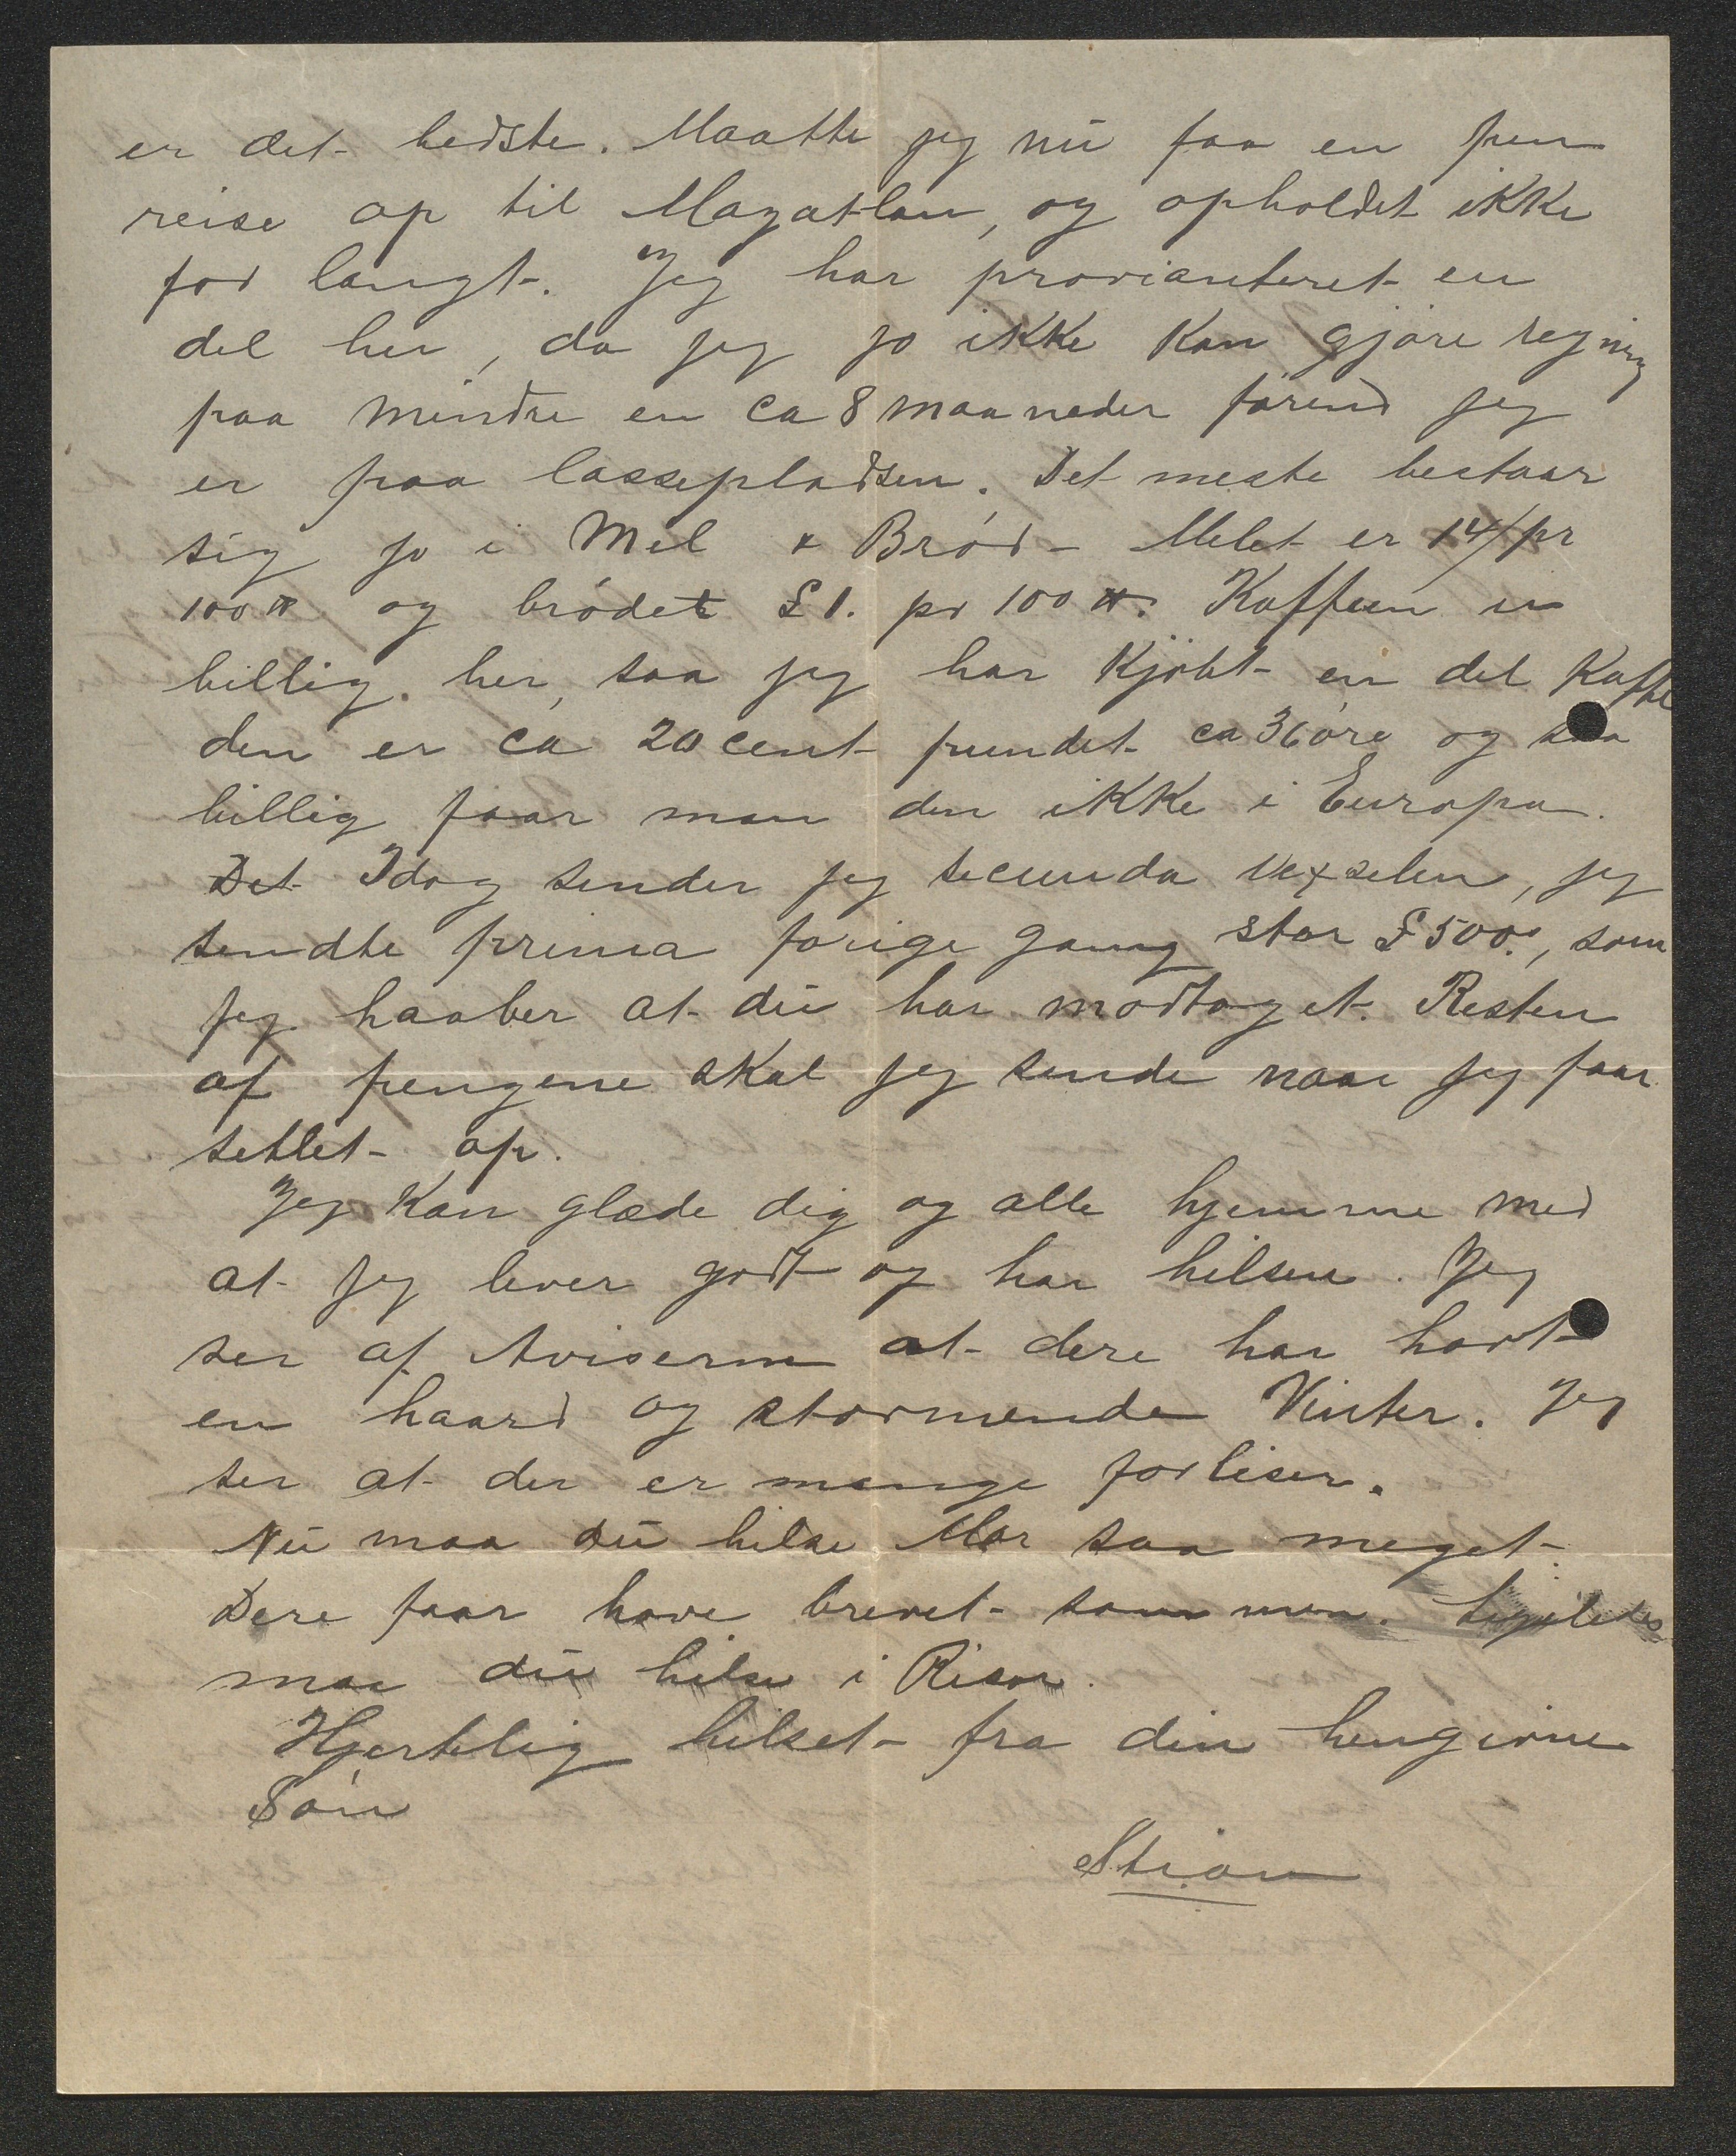 er det bedste. Maatte jeg nu faa en pen
reise op til Mazatlan, og opholdet ikke
for langt. Jeg har provianteret en
del her, da jeg jo ikke kan gjøre regning
paa mindre en ca 8 maaneder førend jeg
er paa lassepladsen. Det meste bestaar
sig jo i Mel & Brød - Melet er 14/ pr
100 ℔ og brødet £1. pr 100 ℔. Kaffeen er
billig her, saa jeg har kjøbt en del Kaffe
den er ca 20 cent pundet ca 36 øre og saa
billig faar man den ikke i Europa.
Det Idag sender jeg secunda Vexselen, jeg
sendte prima forige gang stor £500., som
jeg haaber at du har modtaget. Resten
af pengene skal jeg sende naar jeg faar
settlet op.
Jeg kan glæde dig og alle hjemme med
at jeg lever godt og har helsen. Jeg
ser af Aviserne at dere har havt
en haard og stormende Vinter. Jeg
ser at der er mange forliser.
Nu maa du hilse Mor saa meget.
Dere faar have brevet sammen. Ligeledes
maa du hilse i Risør.
Hjertelig hilset fra din hengivne
Søn
Stian